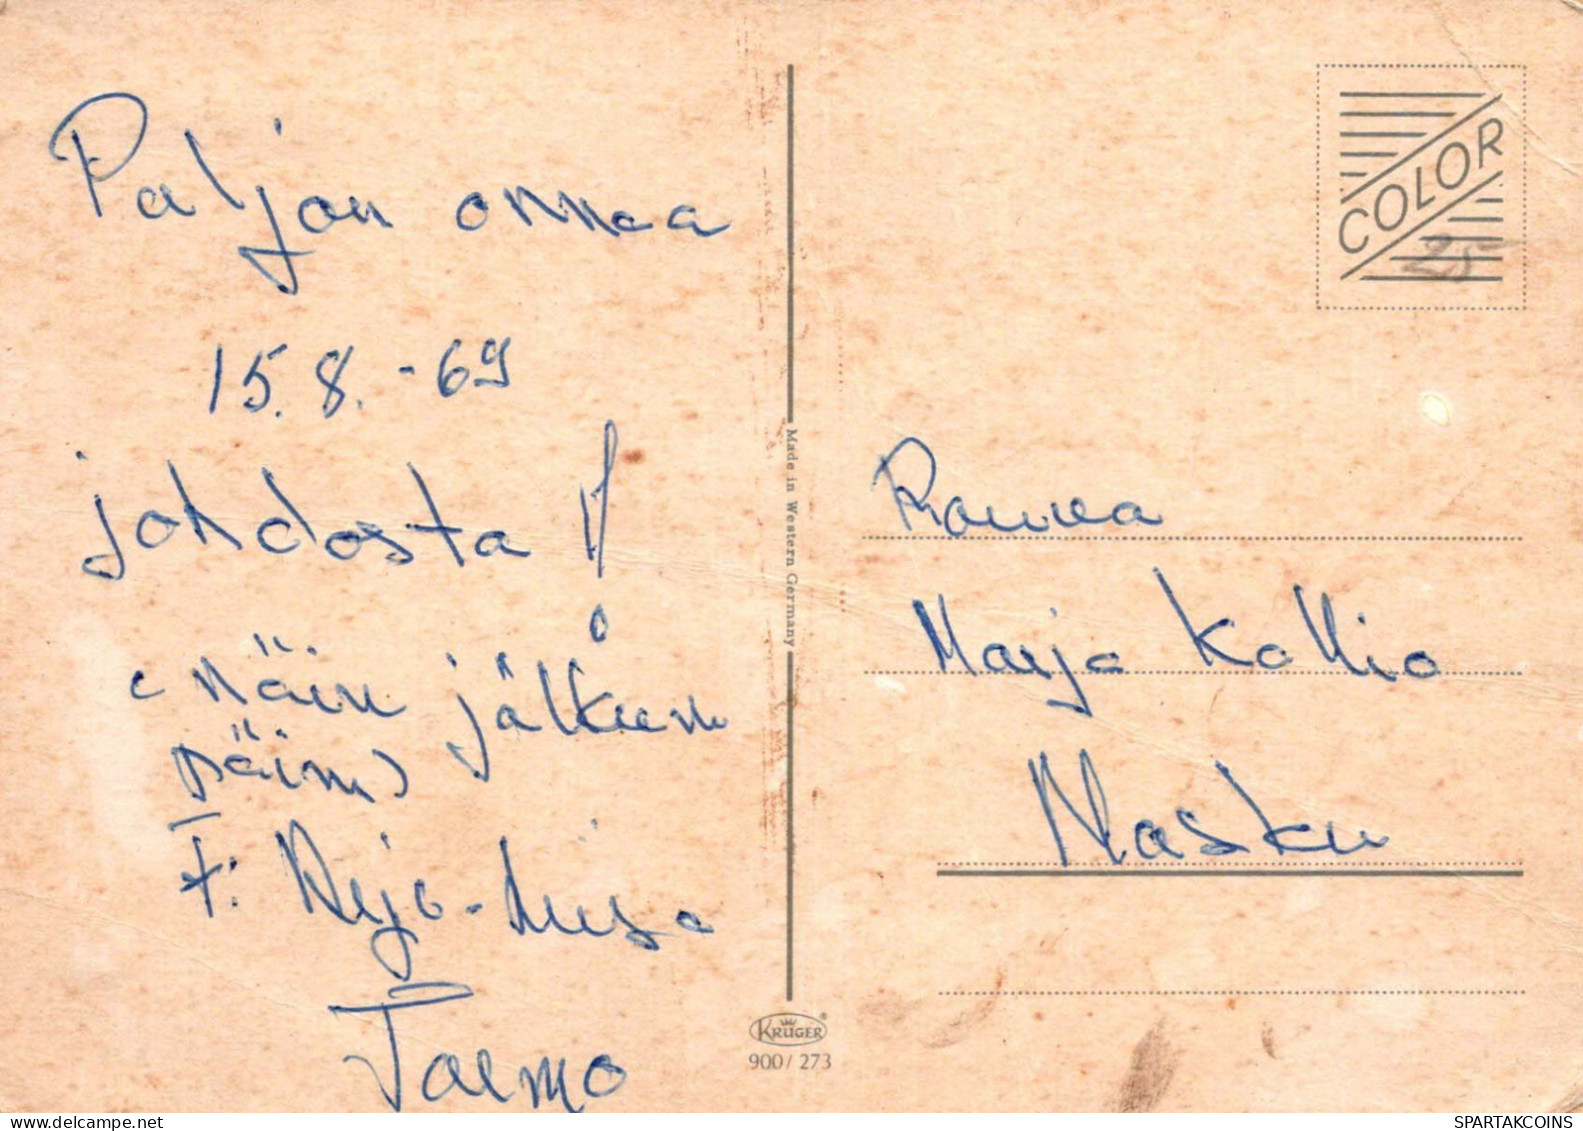 Paljon onnea
15.8.-69
johdosta !
(näin jälkeen
päin)
T: Reijo-Miisa
Tarmo
Made in Western Germany
KRÜGER
900/273
COLOR
25
Rouva
Marja Kallio
Masku
www.delcampe.net
SPARTAKCOINS